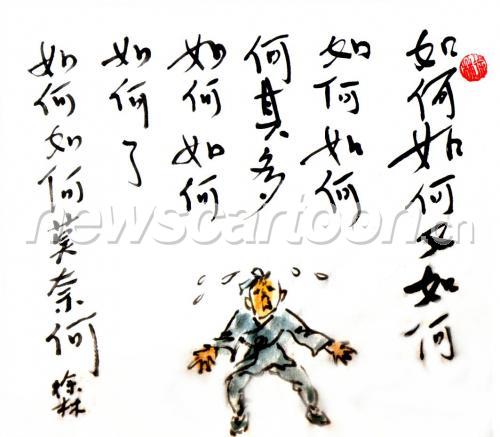 如何如何又如何
如何如何
何其多
如何如何
如何了
如何如何莫奈何
徐林
newscartoon.cn